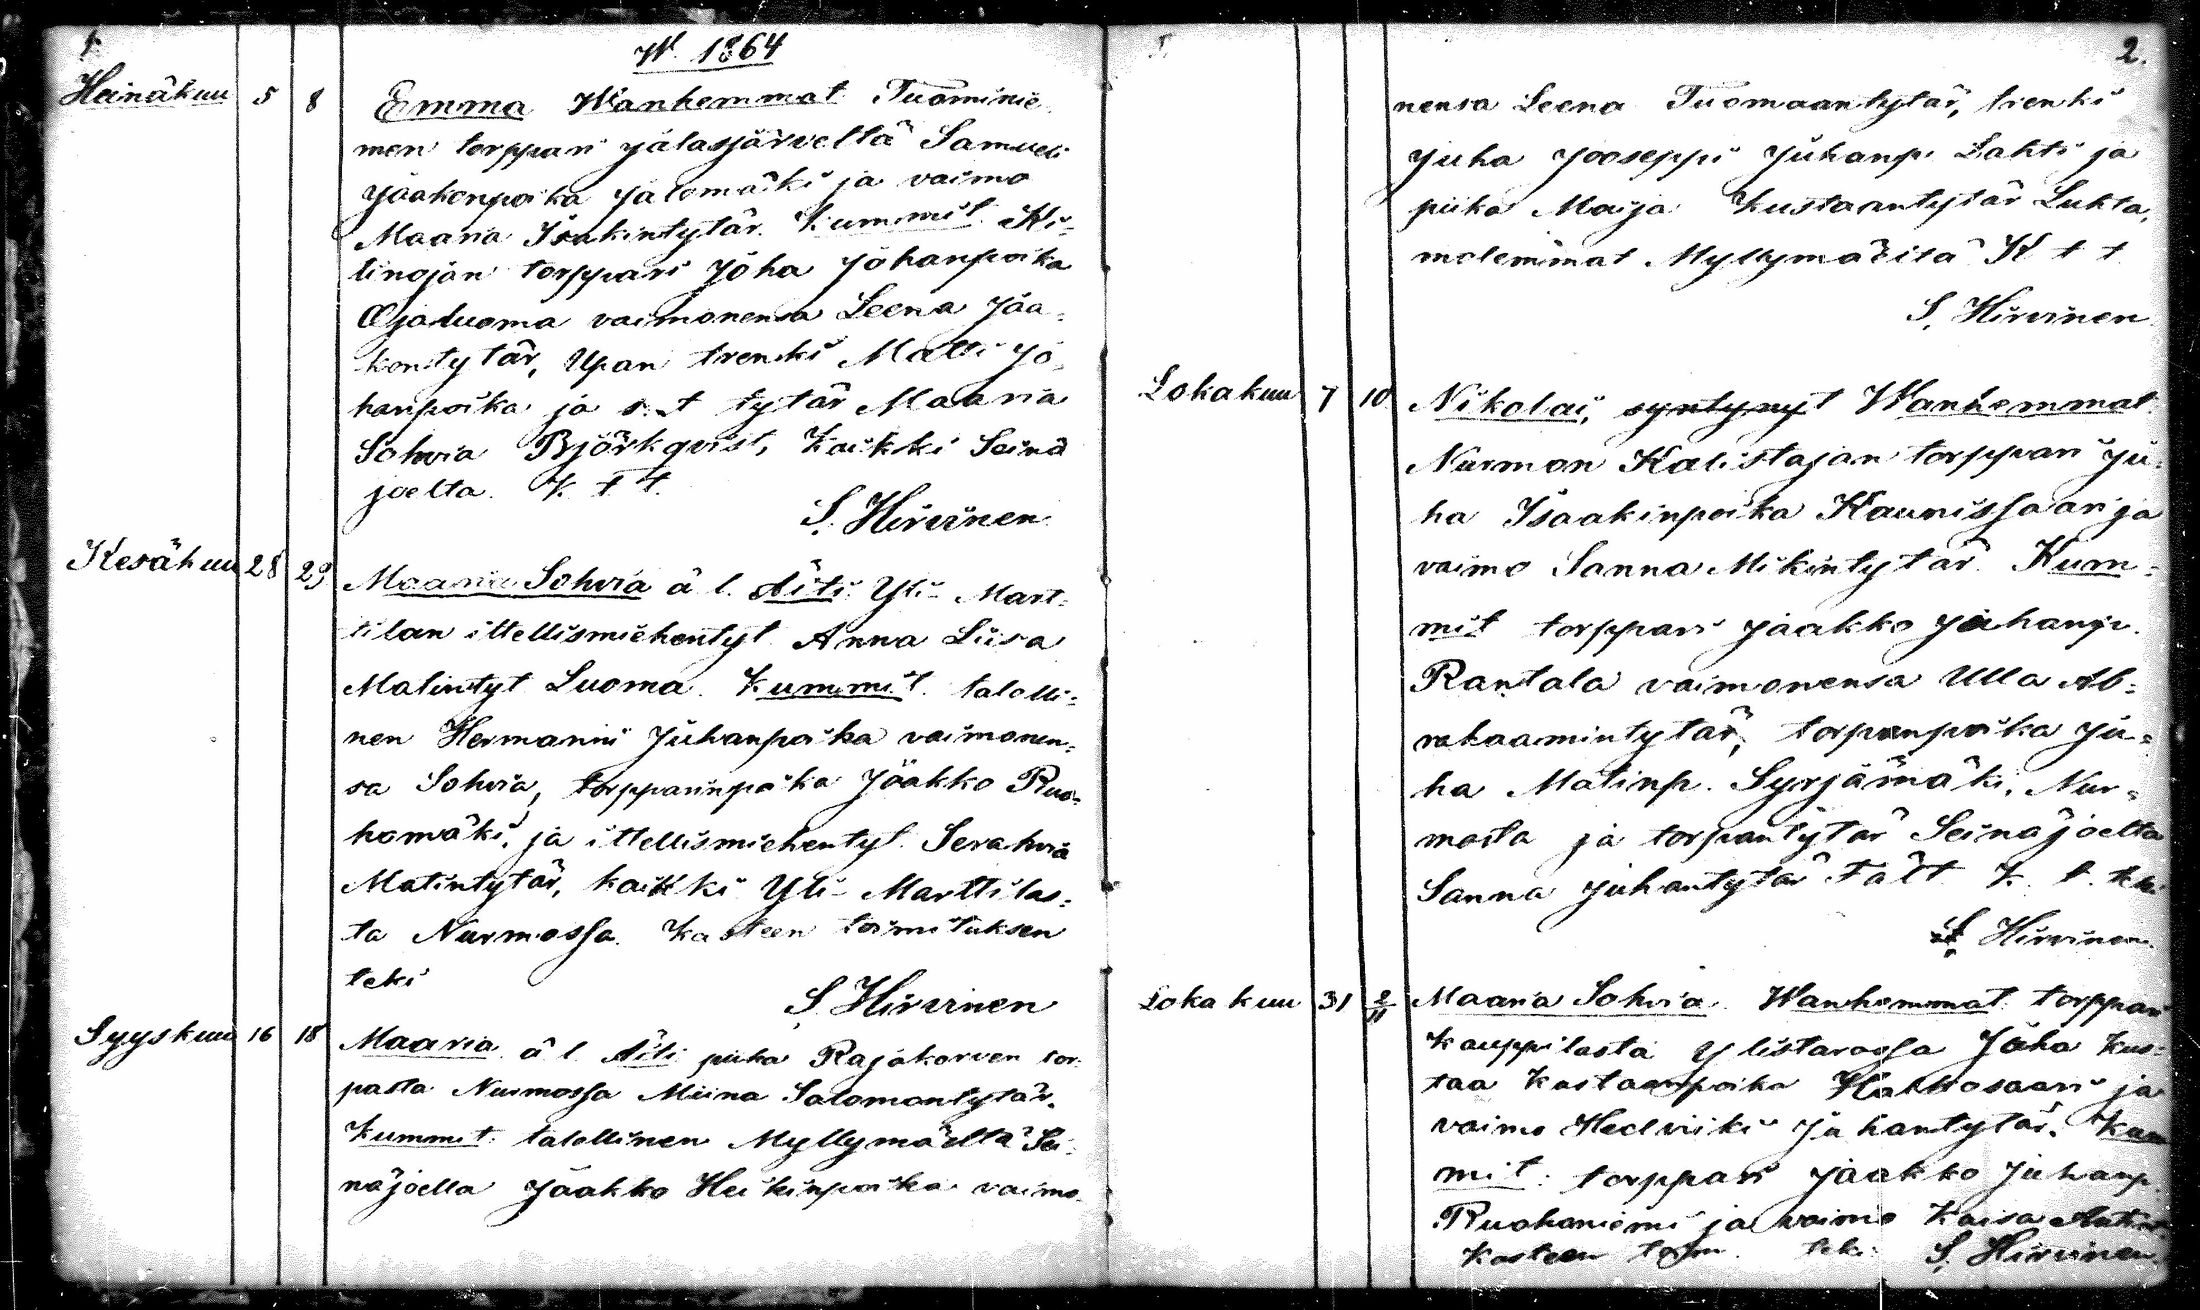 1.
W. 1864
Heinäkuu 5 8 Emma Wanhemmat Tuominie
men torppari Jalasjärveltä Samueli
Jaakonpoika Jalomäki ja vaimo
Maaria Isakintytär. Kummit Ki=
tinojan torppari Joha Johanpoika
Ojaluoma vaimonensa Leena Jaa=
kontytär, Upan trenki Matti Jo=
hanpoika ja s. t tytär Maaria
Sohvia Björkqvist, Kaikki Seinä
joelta. K. t t.
S. Hirvinen.
Kesäkuu 28 29 Maaria Sohvia ä l. Äiti Yli- Mart=
tilan ittellismiehentyt. Anna Liisa
Matintyt Luoma. Kummit. talolli=
nen Hermanni Juhanpoika vaimonen=
sa Sohvia, torpparinpoika Jaakko Ruo=
homäki, ja ittellismiehentyt. Serahvia
Matintytär, kaikki Yli- Marttilas=
ta Nurmossa. Kasteen toimituksen
teki
S. Hirvinen
Syyskuu 16 18 Maaria ä l. Äiti piika Rajakorven tor=
pasta Nurmossa Miina Salomontytär.
Kummit: talollinen Myllymäeltä Sei=
näjoella Jaakko Heikinpoika vaimo-
2.
nensa Leena Tuomaantytär, trenki
Juha Jooseppi Juhanp. Lahti ja
piika Maija Kustaantytär Luhta,
molemmat Myllymäeltä K t t
S. Hirvinen
Lokakuu 7 10 Nikolai, syntynyt Wanhemmat
Nurmon Kalistajan torppari Ju=
ha Isaakinpoika Kaunissaari ja
vaimo Sanna Mikintytär. Kum=
mit torppari Jaakko Juhanp.
Rantala vaimonensa Ulla Ab=
rahaamintytär, torpanpoika Ju=
ha Matinp. Syrjämäki, Nur=
mosta ja torpantytär Seinäjoelta
Sanna Juhantytär Tält K. t. teki
S. Hirvinen.
Lokakuu 31 2/11 Maaria Sohvia. Wanhemmat: torppari
Kauppilasta Ylistarossa Juha Kus=
taa Kustaanpoika Hahkosaari ja
vaimo Hedviiki Juhantytär. Kum
mit: torppari Jaakko Juhanp.
Ruohoniemi ja vaimo Kaisa
Kasteen toim. teki S. Hirvinen.